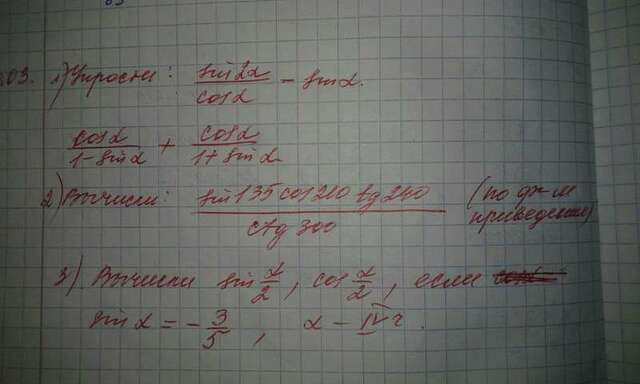 03. 1) Упрости: sin2α/cosα - sinα.
cosα/(1-sinα) + cosα/(1+sinα)
2) Вычисли: sin135 cos210 tg240 / ctg300 (по ф-м приведения)
3) Вычисли sin α/2, cos α/2, если
sinα = -3/5, α - IVч.